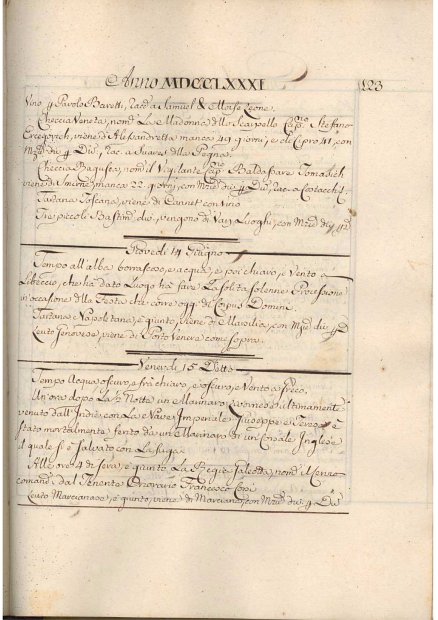 Anno MDCCLXXXI 123
Vino p Pavolo Baretti, Racd a Samuel & Moise Leone.
Checcia Veneta, nomta La Madonna dlla Scarpello Capno Stefano
viene d'Alesandretta manca 49 giorni, e di Cipro 41, con
Mzie div p Div, Rac a Suares dlla Pegna.
Checcia Ragusea, nomta il Vigilante Cap Baldassare Tomasich
viene di Smirne, manca 22 giorni, con Mzie div p Div, Rac a
Tartana Toscana, viene di Cannet con vino
Tre piccoli Bastimti che vengono di Varj Luoghi, con Mzie div p Di
Giovedì 14 Giugno
Tempo all'alba borrascoso, e acqua, e poi chiaro, e Vento a
Libeccio, che ha dato Luogo ha fare La solita solenne Processione
in occasione dlla Festa che corre oggi del Corpus Domini
Tartana Napoletana, è giunta viene di con Mzie div p D
Leuto Genovese, viene di Porto Venere come sopra.
Venerdì 15 Detto
Tempo Acqua oscuro, e frà chiaro, e oscuro, e Vento a Greco,
Un'ora dopo La ½ Notte un Marinaro Svonese ultimamente
venuto dall'Indie, con La Nave Imperiale, Giuseppe e Teresa è
stato mortalmente ferito da un Marinaro di un Corsale Inglese
il quale si è salvato con La fuga.
Alle ore 4 di sera, è giunta La Regia nomta
comand dal Tenente Onorario Francesco
Leuto Marcianase, è giunto, viene di Marciana, con Mzie div p Div